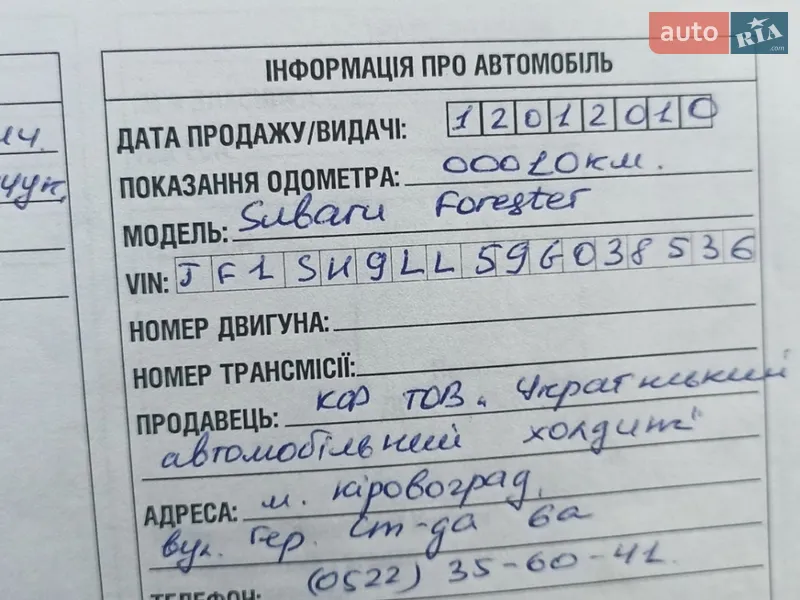 auto RIA .com
ІНФОРМАЦІЯ ПРО АВТОМОБІЛЬ
ДАТА ПРОДАЖУ/ВИДАЧІ: 12012010
ПОКАЗАННЯ ОДОМЕТРА: 00010км.
МОДЕЛЬ: Subaru Forester
VIN: JF1SH9LL59G038536
НОМЕР ДВИГУНА:
НОМЕР ТРАНСМІСІЇ:
ПРОДАВЕЦЬ: КФ ТОВ "Український
автомобільний холдинг"
АДРЕСА: м. Кіровоград,
вул. Гер. Ст-да 6а
ТЕЛЕФОН: (0522) 35-60-41.